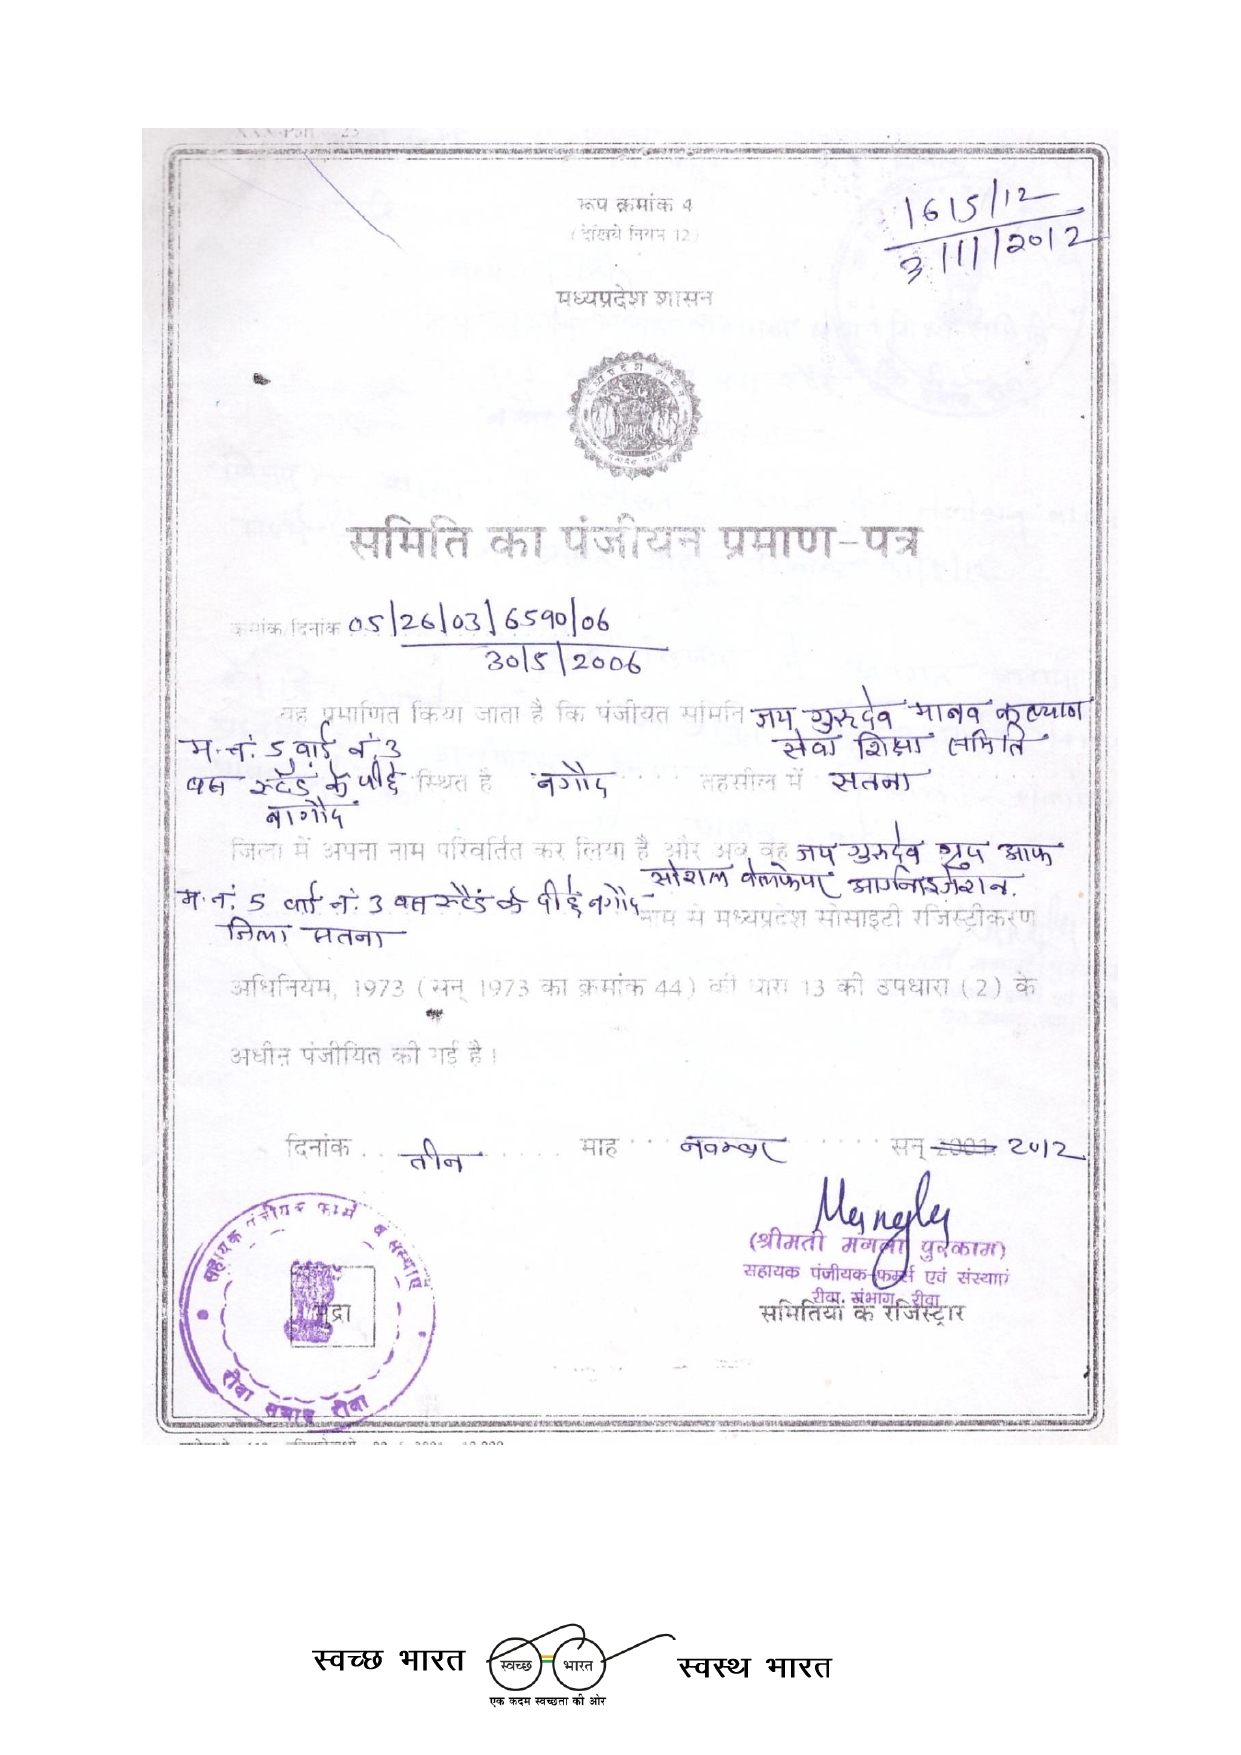 रूप क्रमांक 4
(देखिये नियम 12)
1615/12
3/11/2012
मध्यप्रदेश शासन
समिति का पंजीयन प्रमाण-पत्र
क्रमांक/दिनांक 05/26/03/6590/06
30/5/2006
यह प्रमाणित किया जाता है कि पंजीयत समिति जय गुरुदेव मानव कल्यान
म.नं. 5 वार्ड नं. 3 सेवा शिक्षा समिति
बस स्टैंड के पीछे स्थित है नगौद तहसील में सतना
नागौद
जिला में अपना नाम परिवर्तित कर लिया है और अब वह जय गुरुदेव ग्रुप आफ
सोशल वेलफेयर आर्गनाइजेशन.
म.नं. 5 वार्ड नं. 3 बस स्टैंड के पीछे नगौद
नाम से मध्यप्रदेश सोसाइटी रजिस्ट्रीकरण
जिला सतना
अधिनियम, 1973 (सन् 1973 का क्रमांक 44) की धारा 13 की उपधारा (2) के
अधीन पंजीयित की गई है।
दिनांक तीन माह नवम्बर सन् 2001 2012
(श्रीमती मंगला पुरकाम)
सहायक पंजीयक फर्म्स एवं संस्थाएं
रीवा संभाग, रीवा
समितियों के रजिस्ट्रार
सहायक पंजीयक फर्म व संस्थाएं
मुद्रा
रीवा संभाग रीवा
स्वच्छ भारत स्वच्छ भारत स्वस्थ भारत
एक कदम स्वच्छता की ओर